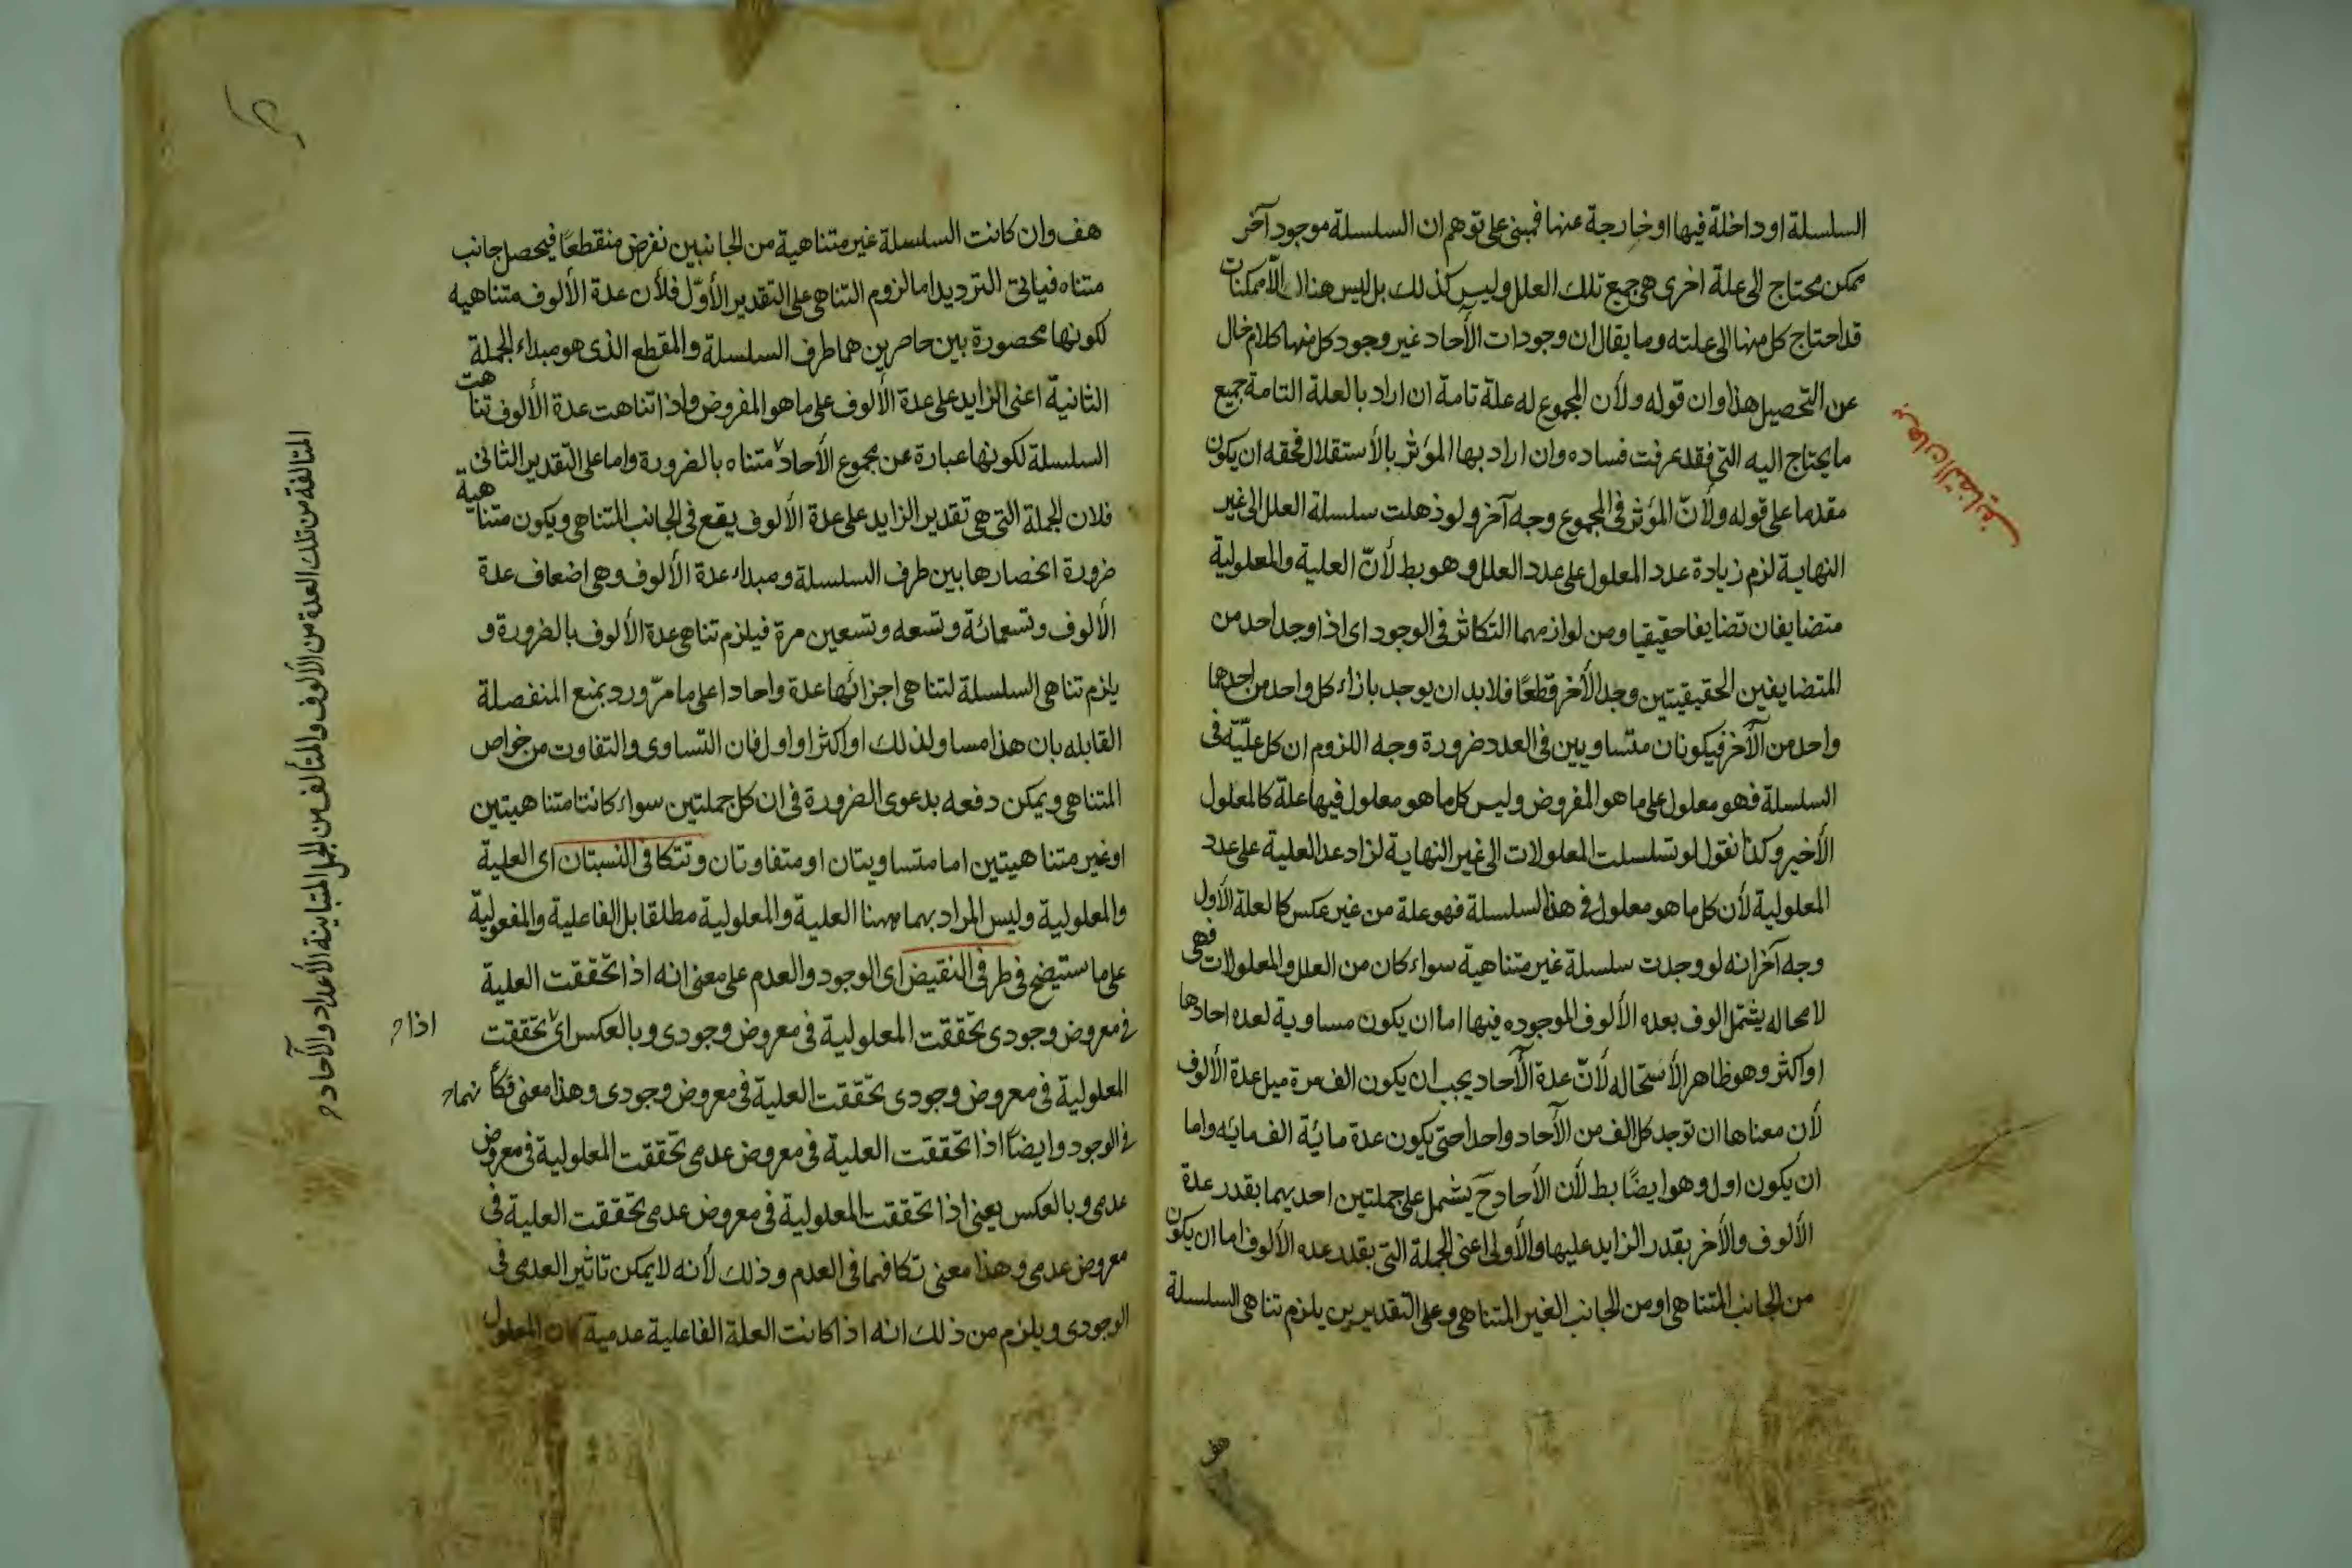 السلسلة او داخلة فيها او خارجة عنها فمبنى على توهم ان السلسلة موجود آخر
ممكن محتاج الى علة اخرى هى جميع تلك العلل وليس كذلك بل ليس هناك الا ممكنات
قد احتاج كل منها الى علته وما يقال ان وجودات الآحاد غير وجود كل منها كلام خال
عن التحصيل هذا وان قوله ولأن المجموع له علة تامة ان اراد بالعلة التامة جميع
ما يحتاج اليه الشئ فقد عرفت فساده وان اراد بها المؤثر بالأستقلال فحقه ان يكون
مقدما على قوله ولأنّ المؤثر فى المجموع وجه آخر ولو ذهلت سلسلة العلل الى غير
النهاية لزم زيادة عدد المعلول على عدد العلل وهو بط لأنّ العلية والمعلولية
متضايفان تضايفا حقيقيا ومن لوازمهما التكاثر فى الوجود اى اذا وجد احد من
المتضايفين الحقيقيتين وجد الأخر قطعًا فلا بد ان يوجد بازاء كل واحد من احدهما
واحد من الآخر فيكونان متساويين فى العدد ضرورة وجه اللزوم ان كل علّيّة فى
السلسلة فهو معلول على ما هو المفروض وليس كل ما هو معلول فيها علة كالمعلول
الأخير وكذا نقول لو تسلسلت المعلولات الى غير النهاية لزاد عدد العلية على عدد
المعلولية لأن كل ما هو معلول فى هذا السلسلة فهو علة من غير عكس كالعلة الأول
وجه آخر انه لو وجدت سلسلة غير متناهية سواء كان من العلل والمعلولات فهى
لا محاله يشتمل الوف بعده الألوف الموجوده فيها اما ان يكون مساوية لعده احادها
او اكثر وهو ظاهر الأستحاله لأنّ عدة الآحاد يجب ان يكون الف مرة مثل عدة الألوف
لأن معناها ان توجد كل الف من الآحاد واحدا حتى يكون عدة مائة الف مائه واما
ان يكون اول وهو ايضًا بط لأن الأحاد ح يشتمل على جملتين احديهما بقدر عدة
الألوف والأخر بقدر الزايد عليها والأولى اعنى الجملة التى بقدر عده الألوف اما ان يكون
من الجانب المتناهى او من الجانب الغير المتناهى وعلى التقديرين يلزم تناهى السلسلة
هف
برهان التضايف
هف وان كانت السلسلة غير متناهية من الجانبين نفرض منقطعًا فيحصل جانب
متناه فيأتى الترديد اما لزوم التناهى على التقدير الأوّل فلأن عدة الألوف متناهيه
لكونها محصورة بين حاصرين هما طرف السلسلة والمقطع الذى هو مبداء الجملة
الثانية اعنى الزايد على عدة الألوف على ما هو المفروض واذا تناهت عدة الألوف تناهت
السلسلة لكونها عبارة عن مجموع الأحاد متناه بالضرورة واما على التقدير الثانى
فلان الجملة التى هى تقدير الزايد على عدة الألوف يقع فى الجانب المتناهى ويكون متناهية
ضرورة انحصارها بين طرف السلسلة ومبداء عدة الألوف وهى اضعاف عدة
الألوف وتسعمائة وتسعه وتسعين مرة فيلزم تناهى عدة الألوف بالضرورة و
يلزم تناهى السلسلة لتناهى اجزائها عدة واحادا على ما مرّ وورد بمنع المنفصلة
القابله بان هذا مساو لذلك او اكثر او اول فان التساوى والتفاوت من خواص
المتناهى ويمكن دفعه بدعوى الضرورة فى ان كل جملتين سواء كانتا متناهيتين
او غير متناهيتين اما متساويتان او متفاوتان وتتكافى النسبتان اى العلية
والمعلولية وليس المراد بهما ههنا العلية والمعلولية مطلقا بل الفاعلية والمفعولية
على ما ستيضح فى طرفى النقيض اى الوجود والعدم على معنى انه اذا تحققت العلية
فى معروض وجودى تحققت المعلولية فى معروض وجودى وبالعكس اى تحققت
المعلولية فى معروض وجودى تحققت العلية فى معروض وجودى وهذا معنى تكا
فى الوجود وايضًا اذا تحققت العلية فى معروض عدمى تحققت المعلولية فى معروض
عدمى وبالعكس يعنى اذا تحققت المعلولية فى معروض عدمى تحققت العلية فى
معروض عدمى وهذا معنى تكافهما فى العدم وذلك لأنه لا يمكن تاثير العدمى فى
الوجودى ويلزم من ذلك انه اذا كانت العلة الفاعلية عدمية كان المعلول
اذا ح
المتالفة من تلك العدة من الألوف والمتألف من الجمل المتباينة الأعداد والآحاد ح